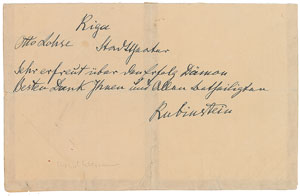 Riga
Otto Lohse Stadttheater
Sehr erfreut über den Erfolg Dämon
besten Dank Ihnen und Allen Betheiligten
Rubinstein